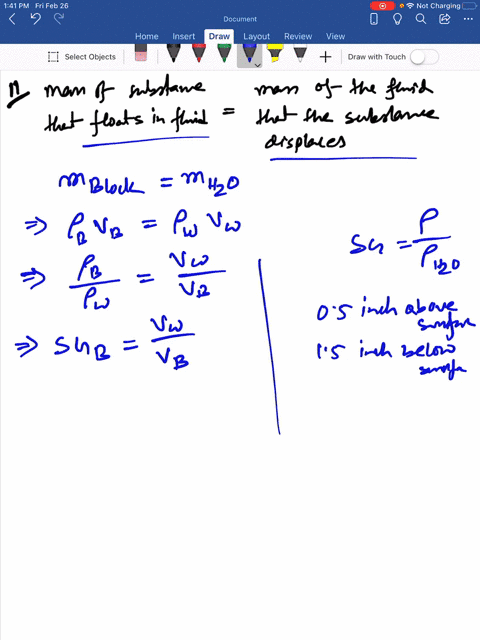 1:41 PM Fri Feb 26
Not Charging
Document
Home Insert Draw Layout Review View
Select Objects
Draw with Touch
mass of substance
that floats in fluid =
mass of the fluid
that the substance
displaces
m Block = m H2O
⇒ ρB VB = ρW VW
⇒ ρB/ρW = VW/VB
⇒ SGB = VW/VB
SG = ρ/ρH2O
0.5 inch above
surface
1.5 inch below